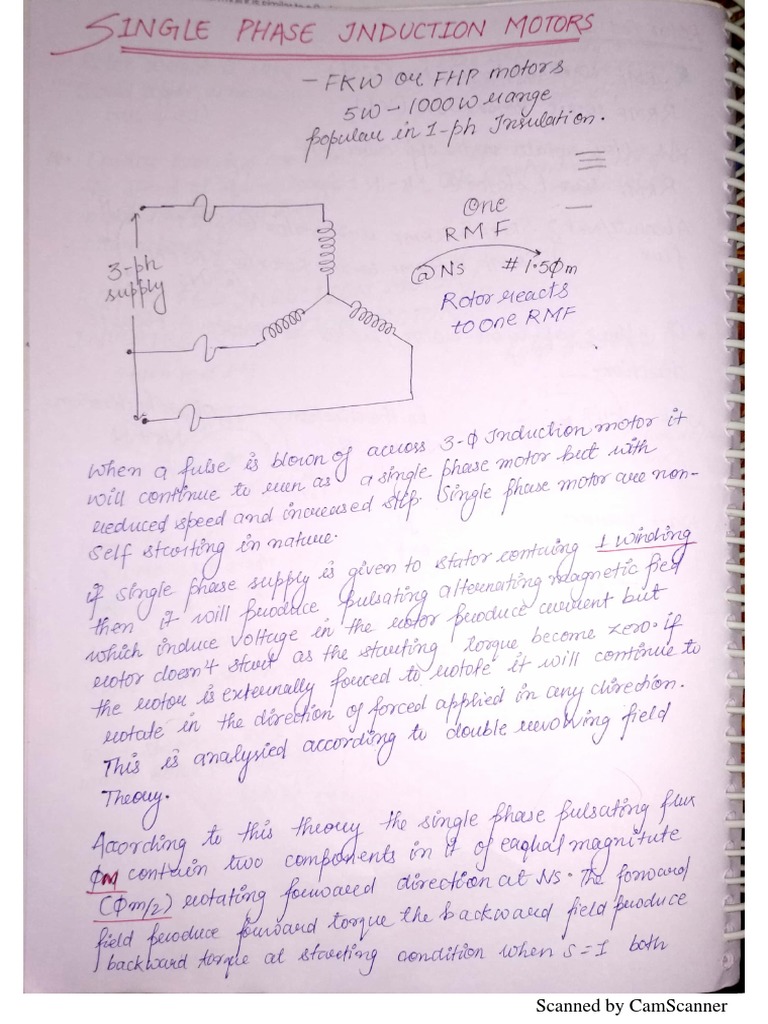 SINGLE PHASE INDUCTION MOTORS
- FKW or FHP motors
5W - 1000W range
popular in 1-ph Insulation.
3-ph
supply
One
RMF
@Ns # 1.5Φm
Rotor reacts
to one RMF
When a fuse is blown of across 3-Φ Induction motor it
will continue to run as a single phase motor but with
reduced speed and increased slip. Single phase motor are non-
self starting in nature.
if single phase supply is given to stator containg 1 winding
then it will produce pulsating alternating magnetic fied
which induce voltage in the rotor produce current but
motor doesn't start as the starting torque become zero. if
the motor is externally forced to rotate it will continue to
rotate in the direction of forced applied in any direction.
This is analysied according to double revolving field
Theory.
According to this theory the single phase pulsating flux
ΦM contain two components in it of eaqhal magnitute
(Φm/2) rotating forward direction at Ns. The forward
field produce forward torque the backward field produce
backward torque at starting condition when S=1 both
Scanned by CamScanner